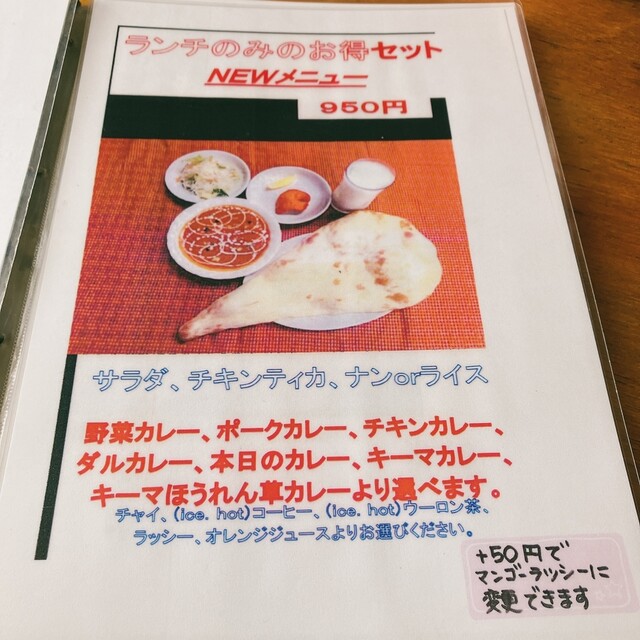 ランチのみのお得セット
NEWメニュー
950円
サラダ、チキンティカ、ナンorライス
野菜カレー、ポークカレー、チキンカレー、
ダルカレー、本日のカレー、キーマカレー、
キーマほうれん草カレーより選べます。
チャイ、(ice. hot)コーヒー、(ice. hot)ウーロン茶、
ラッシー、オレンジジュースよりお選びください。
+50円で
マンゴーラッシーに
変更できます